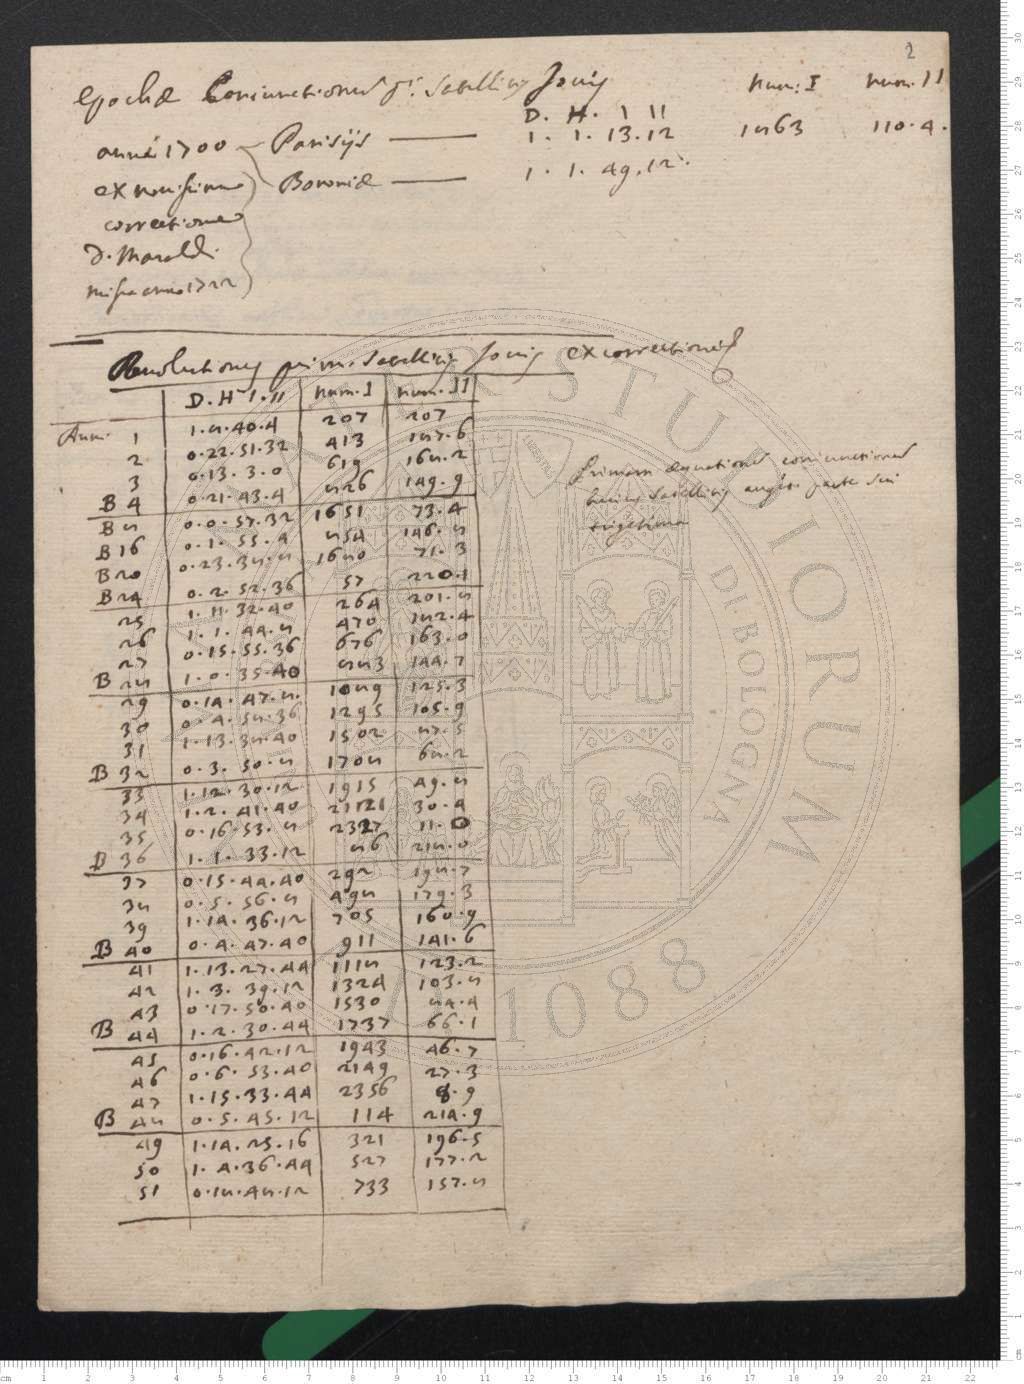 2
Epochæ Coniunctionum pi. Satellitis Jovis num. I num. II
D. H. I II
anni 1700 Parisijs 1. 1. 13. 12 1863 110.4.
ex novissima Bononiæ 1. 1. 49. 12.
correctione
D. Maraldi
missa anno 1722
Revolutiones primi Satellitis Jovis ex correctione
D. H. I. II num. I num. II
Anni 1 1.8.40.4 207 207
2 0.22.51.32 413 187.6
3 0.13.3.0 619 168.2
B 4 0.21.43.4 826 149.9
B 8 0.0.57.32 1651 73.4
B 16 0.1.55.4 854 146.8
B 20 0.23.38.8 1680 71.3
B 24 0.2.52.36 57 220.1
25 1.11.32.40 264 201.8
26 1.1.44.8 470 182.4
27 0.15.55.36 676 163.0
B 28 1.0.35.40 883 144.7
29 0.14.47.8 1089 125.3
30 0.4.58.36 1295 105.9
31 1.13.38.40 1502 87.5
B 32 0.3.50.8 1708 68.2
33 1.12.30.12 1915 49.8
34 1.2.41.40 2121 30.4
35 0.16.53.8 2327 11.0
B 36 1.1.33.12 86 218.0
37 0.15.44.40 292 198.7
38 0.5.56.8 498 179.3
39 1.14.36.12 705 160.9
B 40 0.4.47.40 911 141.6
41 1.13.27.44 1118 123.2
42 1.3.39.12 1324 103.8
43 0.17.50.40 1530 84.4
B 44 1.2.30.44 1737 66.1
45 0.16.42.12 1943 46.7
46 0.6.53.40 2149 27.3
47 1.15.33.44 2356 8.9
B 48 0.5.45.12 114 214.9
49 1.14.25.16 321 196.5
50 1.4.36.44 527 177.2
51 0.18.48.12 733 157.8
Primam æquationem coniunctionum
huius Satellitis auget parte sui
trigesima
STUDIORUM
DI BOLOGNA
1088